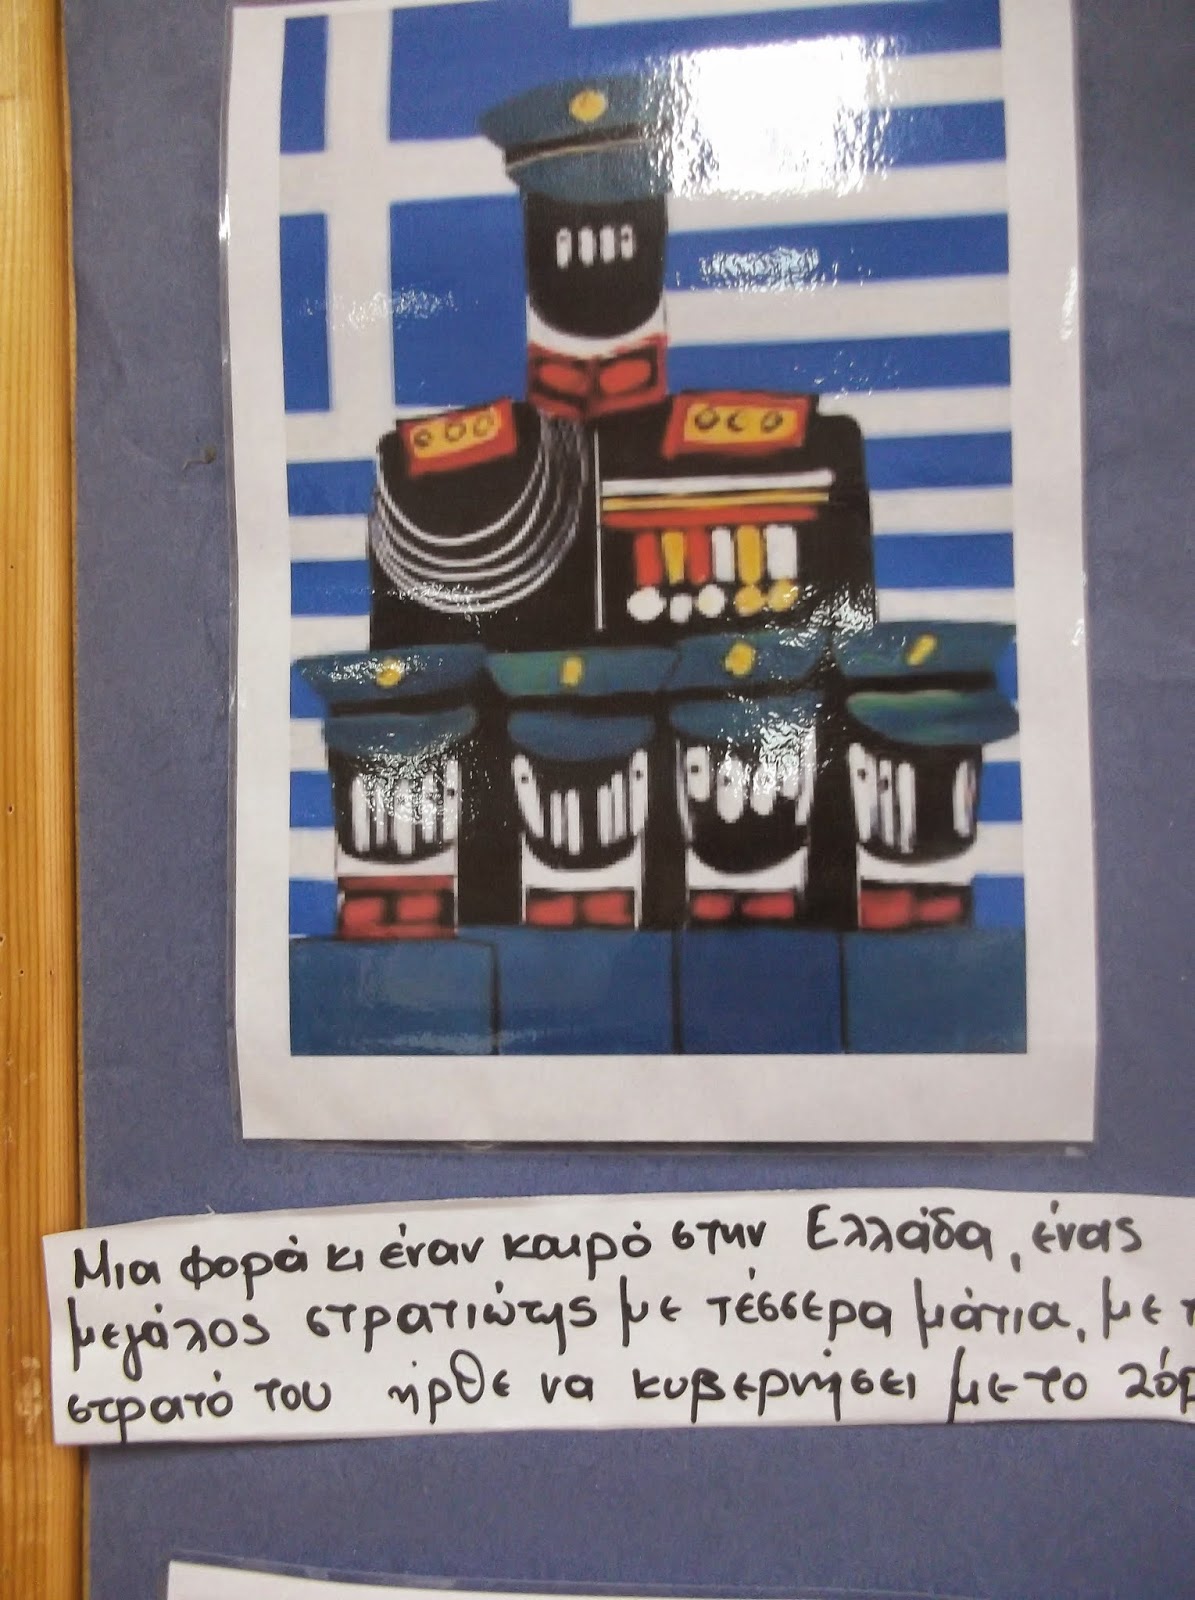 Μια φορά κι έναν καιρό στην Ελλάδα, ένας
μεγάλος στρατιώτης με τέσσερα μάτια, με
στρατό του ήρθε να κυβερνήσει με το